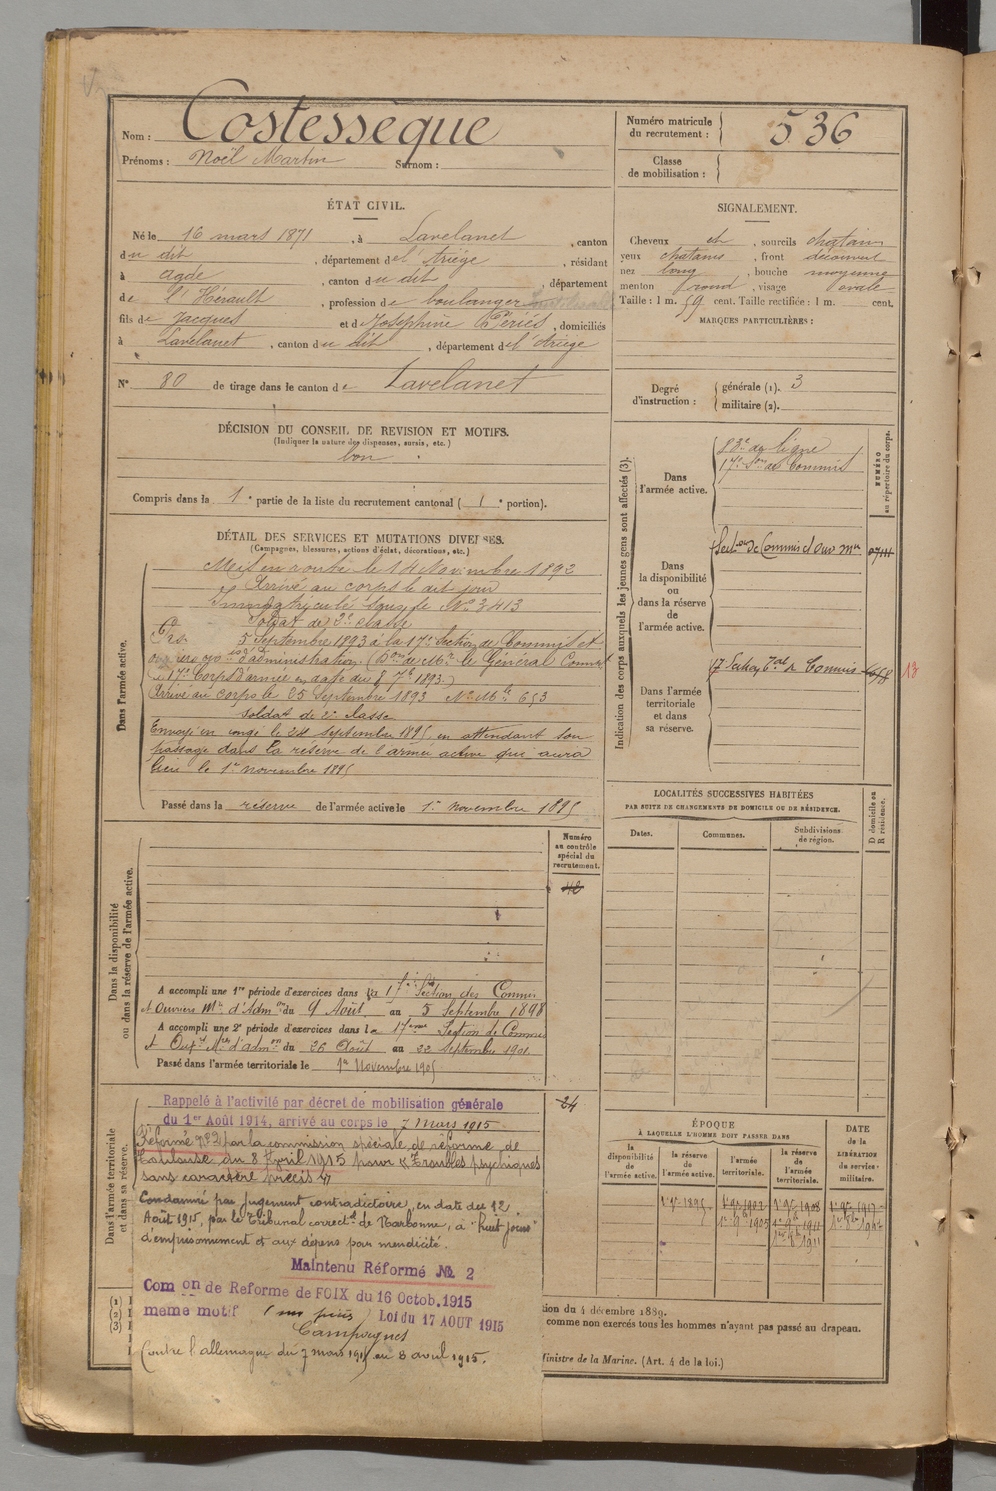 Nom : Costessèque
Prénoms : Noël Martin Surnom :
Numéro matricule du recrutement : 536
Classe de mobilisation :
ÉTAT CIVIL.
Né le 16 mars 1871, à Lavelanet, canton
du dit, département de l'Ariège, résidant
à Agde, canton du dit, département
de l'Hérault, profession de boulanger
fils de Jacques et de Joséphine Périés, domiciliés
à Lavelanet, canton du dit, département de l'Ariège
N° 80 de tirage dans le canton de Lavelanet
SIGNALEMENT.
Cheveux et, sourcils chatain
yeux chatains, front découvert
nez long, bouche moyenne
menton rond, visage ovale
Taille : 1 m. 59 cent. Taille rectifiée : 1 m. cent.
MARQUES PARTICULIÈRES :
Degré d'instruction : générale (1). 3
militaire (2).
DÉCISION DU CONSEIL DE REVISION ET MOTIFS.
(Indiquer la nature des dispenses, sursis, etc.)
bon
Compris dans la 1e partie de la liste du recrutement cantonal (1e portion).
DÉTAIL DES SERVICES ET MUTATIONS DIVERSES.
(Campagnes, blessures, actions d'éclat, décorations, etc.)
Dans l'armée active.
Mis en route le 14 Novembre 1892
Arrivé au corps le dit jour
Immatriculé sous le N° 3413
Soldat de 2e classe
5 Septembre 1893 à la 17e Section de Commis et
ouvriers d'administration (Don de Mr le Général Commt
le 17e Corps d'armée en date du 8 7bre 1893.)
Arrivé au corps le 25 Septembre 1893 N° Mle 653
soldat de 2e classe
Envoyé en congé le 24 septembre 1895 en attendant son
passage dans la réserve de l'armée active qui aura
lieu le 1er novembre 1895
Passé dans la réserve de l'armée active le 1er novembre 1895
Indication des corps auxquels les jeunes gens sont affectés (3).
NUMÉRO au répertoire du corps.
Dans l'armée active.
83e de ligne
17e Son de Commis
Dans la disponibilité ou dans la réserve de l'armée active.
Section de Commis et Ouv mre
Dans l'armée territoriale et dans sa réserve.
17 Section Tale de Commis 13
LOCALITÉS SUCCESSIVES HABITÉES
PAR SUITE DE CHANGEMENTS DE DOMICILE OU DE RÉSIDENCE.
Dates. Communes. Subdivisions de région. D domicile ou R résidence.
Dans la disponibilité ou dans la réserve de l'armée active.
Numéro au contrôle spécial du recrutement.
42
A accompli une 1re période d'exercices dans la 17e Section des Commis
et Ouvriers Mres d'Admon du 9 Août au 5 Septembre 1898
A accompli une 2e période d'exercices dans la 17ème Section de Commis
et Ouvrs Mres d'admon du 26 Août au 22 Septembre 1901
Passé dans l'armée territoriale le 1er Novembre 1905
Dans l'armée territoriale et dans sa réserve.
24
Rappelé à l'activité par décret de mobilisation générale
du 1er Août 1914, arrivé au corps le 7 mars 1915
Réformé n° 2 par la commission spéciale de réforme de
Toulouse du 8 Avril 1915 pour "Troubles psychiques
sans caractère précis"
Condamné par jugement contradictoire en date du 12
Août 1915, par le Tribunal correctel de Narbonne, à "huit jours"
d'emprisonnement et aux dépens pour mendicité.
Maintenu Réformé No. 2
Com on de Reforme de FOIX du 16 Octob. 1915
meme motif Loi du 17 AOUT 1915
Campagnes
Contre l'allemagne du 7 mars 1915 au 8 avril 1915.
ÉPOQUE
À LAQUELLE L'HOMME DOIT PASSER DANS
la disponibilité de l'armée active.
la réserve de l'armée active.
l'armée territoriale.
la réserve de l'armée territoriale.
DATE de la LIBÉRATION du service militaire.
(1)
(2)
(3)
tion du 4 décembre 1889.
comme non exercés tous les hommes n'ayant pas passé au drapeau.
Ministre de la Marine. (Art. 4 de la loi.)